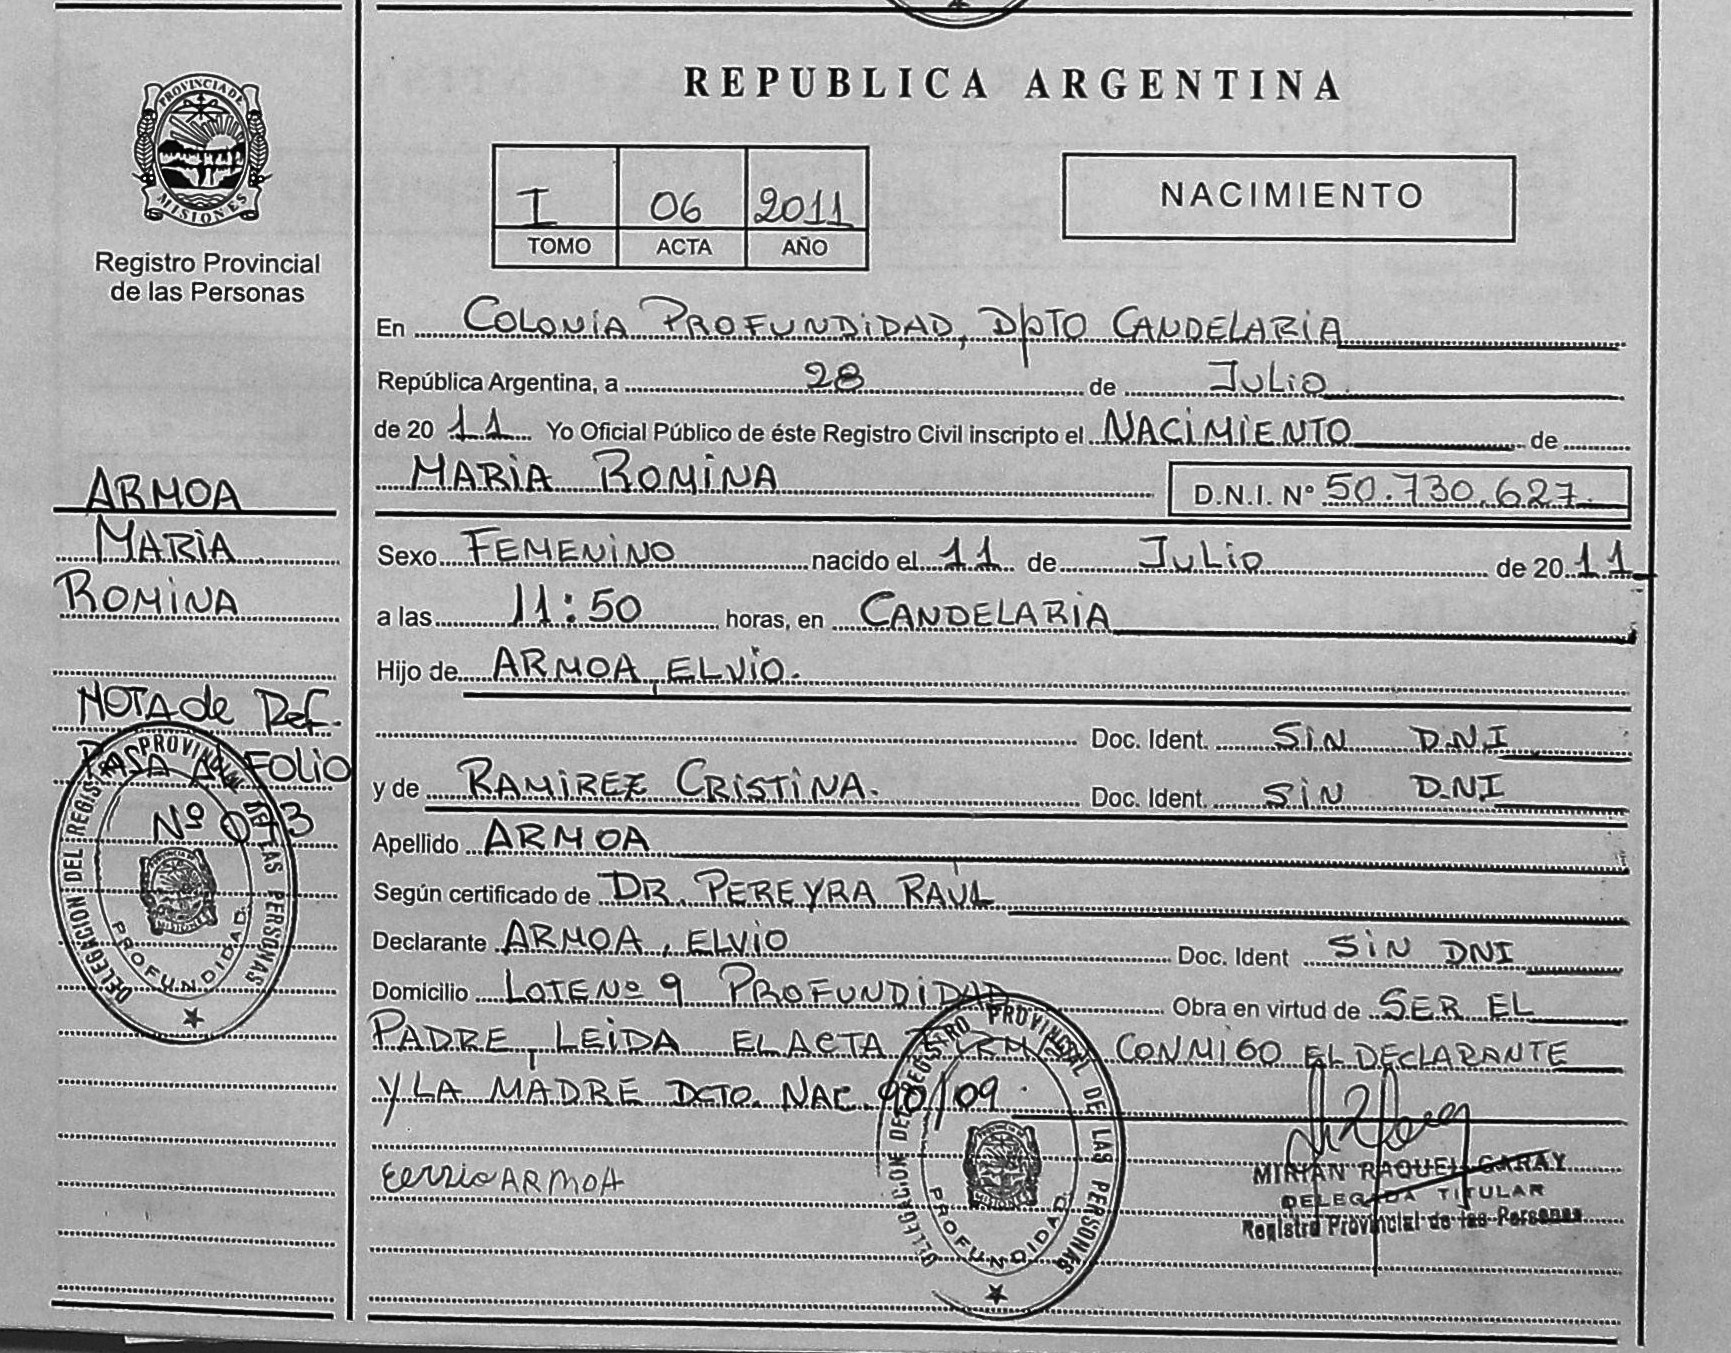 REPUBLICA ARGENTINA
PROVINCIA DE MISIONES
Registro Provincial
de las Personas
I 06 2011
TOMO ACTA AÑO
NACIMIENTO
En COLONIA PROFUNDIDAD, DPTO CANDELARIA
República Argentina, a 28 de JULIO
de 20 11 Yo Oficial Público de éste Registro Civil inscripto el NACIMIENTO de
MARIA ROMINA D.N.I. N° 50.730.627.
Sexo FEMENINO nacido el 11 de JULIO de 20 11
a las 11:50 horas, en CANDELARIA
Hijo de ARMOA, ELVIO.
Doc. Ident. SIN D.N.I
y de RAMIREZ CRISTINA. Doc. Ident. SIN D.NI
Apellido ARMOA
Según certificado de DR. PEREYRA RAÚL
Declarante ARMOA, ELVIO Doc. Ident SIN DNI
Domicilio LOTE Nº 9 PROFUNDIDAD Obra en virtud de SER EL
PADRE, LEIDA EL ACTA CONMIGO EL DECLARANTE
Y LA MADRE DCTO. NAC. 90/09.
ARMOA
MIRIAN RAQUEL GARAY
DELEGADA TITULAR
Registro Provincial de las Personas
DELEGACION DEL REGISTRO PROVINCIAL DE LAS PERSONAS
PROFUNDIDAD
ARMOA
MARIA
ROMINA
NOTA de Ref.
PASA AL FOLIO
Nº
DELEGACION DEL REGISTRO PROVINCIAL DE LAS PERSONAS
PROFUNDIDAD